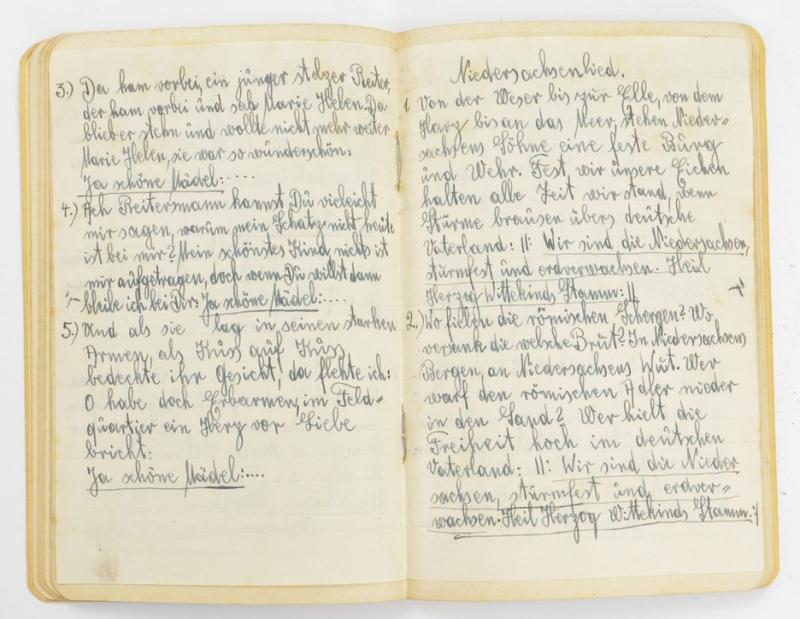 3.) Da kam vorbei, ein jünger stolzer Reiter,
der kam vorbei ünd sah Marie Helen. Da
blieb er stehn ünd wollte nicht mehr weiter
Marie Helen, sie war so wünderschön:
Ja schöne Mädel:....
4.) Ach Reitersmann kannst Dü vieleicht
mir sagen, warüm mein Schatz nicht heüte
ist bei mir? Mein schönstes Kind, nichts ist
mir aüfgetragen, doch wenn Dü willst dann
bleibe ich bei Dir: Ja schöne Mädel:....
5.) Ünd als sie lag in seinen starken
Armen, als Küss aüf Küss
bedeckte ihr Gesicht, da flehte ich:
O habe doch Erbarmen, im Feld=
qüartier ein Herz vor Liebe
bricht:
Ja schöne Mädel:....
Niedersachsenlied.
1. Von der Weser bis zür Elle, von dem
Harz bis an das Meer, stehen Nieder=
sachsens Söhne eine feste Bürg
ünd Wehr. Fest, wir ünsere Eichen
halten alle Zeit wir stand, wenn
Stürme braüsen übers deütsche
Vaterland: II: Wir sind die Niedersachsen,
stürmfest ünd erdverwachsen. Heil
Herzog Wittekinds Stamm: II
2.) Wo fielen die römischen Schergen? Wo
versank die welsche Brüt? In Niedersachsens
Bergen, an Niedersachsens Wüt. Wer
warf den römischen Adler nieder
in den Sand? Wer hielt die
Freiheit hoch im deütschen
Vaterland: II: Wir sind die Nieder
sachsen, stürmfest ünd erdver=
wachsen. Heil Herzog Wittekinds Stamm:/